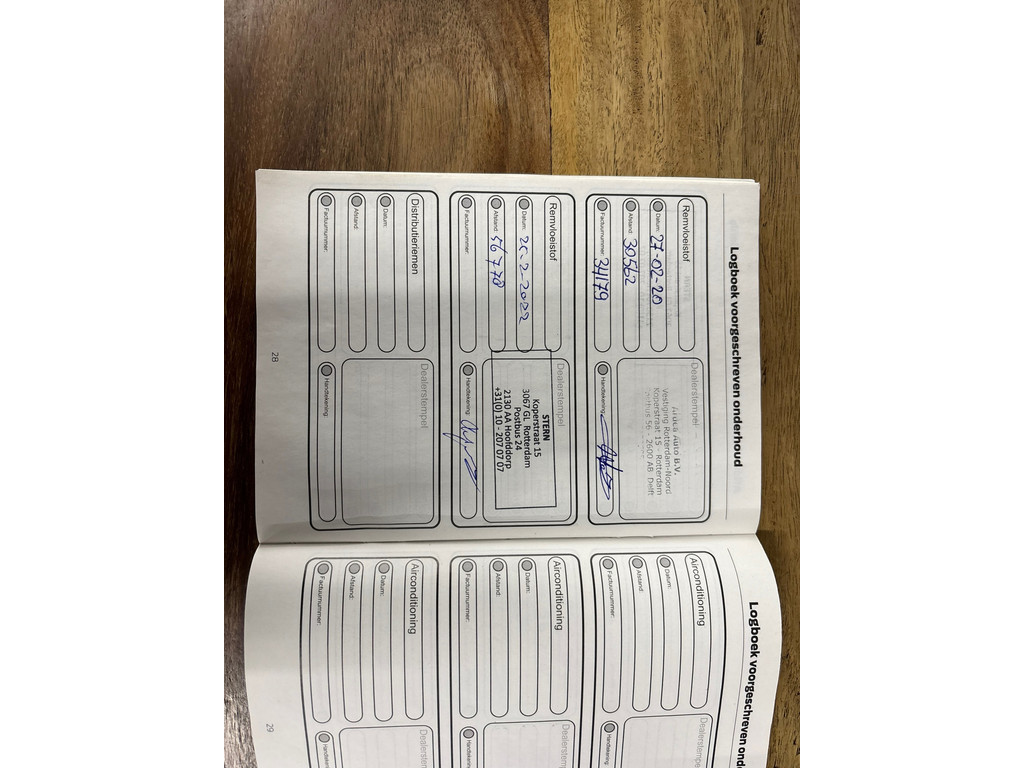 Logboek voorgeschreven onderhoud
Remvloeistof
Datum: 27-02-20
Afstand: 30562
Factuurnummer: 34179
Dealerstempel
Auto B.V.
Vestiging Rotterdam-Noord
Koperstraat 15 - Rotterdam
56 - 2600 AB Delft
Handtekening:
Remvloeistof
Datum: 25-2-2022
Afstand: 56778
Factuurnummer:
Dealerstempel
STERN
Koperstraat 15
3067 GL Rotterdam
Postbus 24
2130 AA Hoofddorp
+31(0) 10 - 207 07 07
Handtekening:
Distributieriemen
Datum:
Afstand:
Factuurnummer:
Dealerstempel
Handtekening:
28
Logboek voorgeschreven
Airconditioning
Datum:
Afstand:
Factuurnummer:
Dealerstem
Handtekening
Airconditioning
Datum:
Afstand:
Factuurnummer:
Dealerstem
Handtekening
Airconditioning
Datum:
Afstand:
Factuurnummer:
Dealerstem
Handtekenin
29